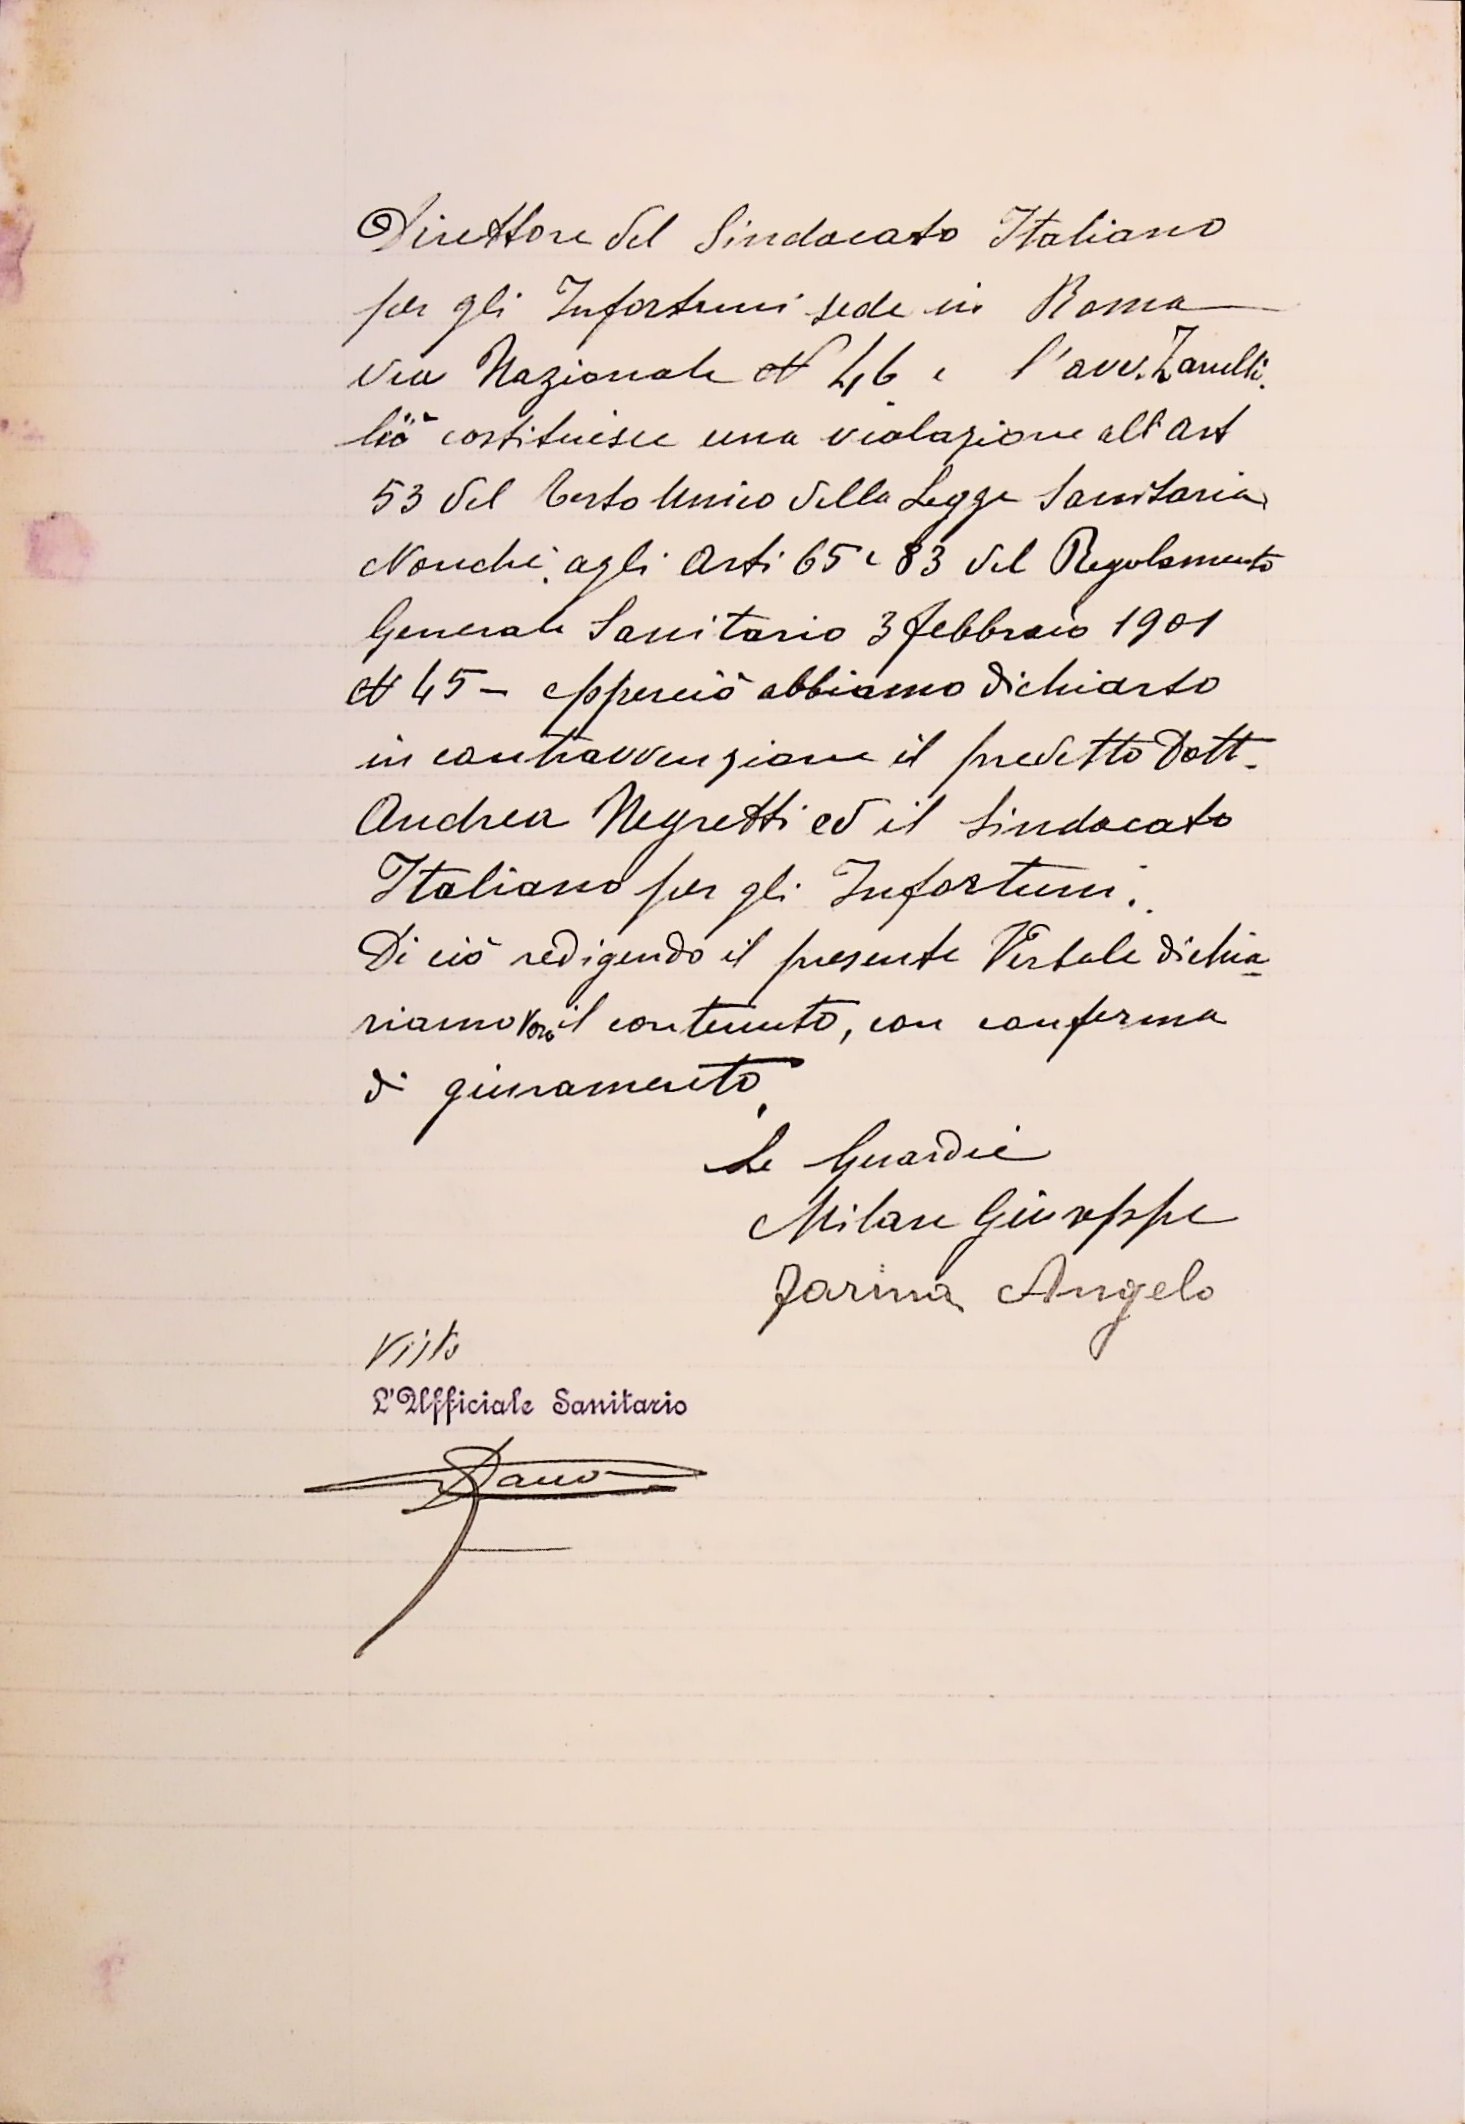 Direttore del Sindacato Italiano
per gli Infortuni sede in Roma
via Nazionale N 46 e l'avv. Zanelli.
Ciò costituisce una violazione all'Art
53 del Testo Unico della Legge Sanitaria
Nonchè agli Arti 65 e 83 del Regolamento
Generale Sanitario 3 febbraio 1901
N 45 - epperciò abbiamo dichiarto
in contravvenzione il predetto Dott.
Andrea Negretti ed il Sindacato
Italiano per gli Infortuni.
Di ciò redigendo il presente Verbale dichia=
riamo vero il contenuto, con conferma
di giuramento.
Le Guardie
Milan Giuseppe
Farina Angelo
Visto
L'Ufficiale Sanitario